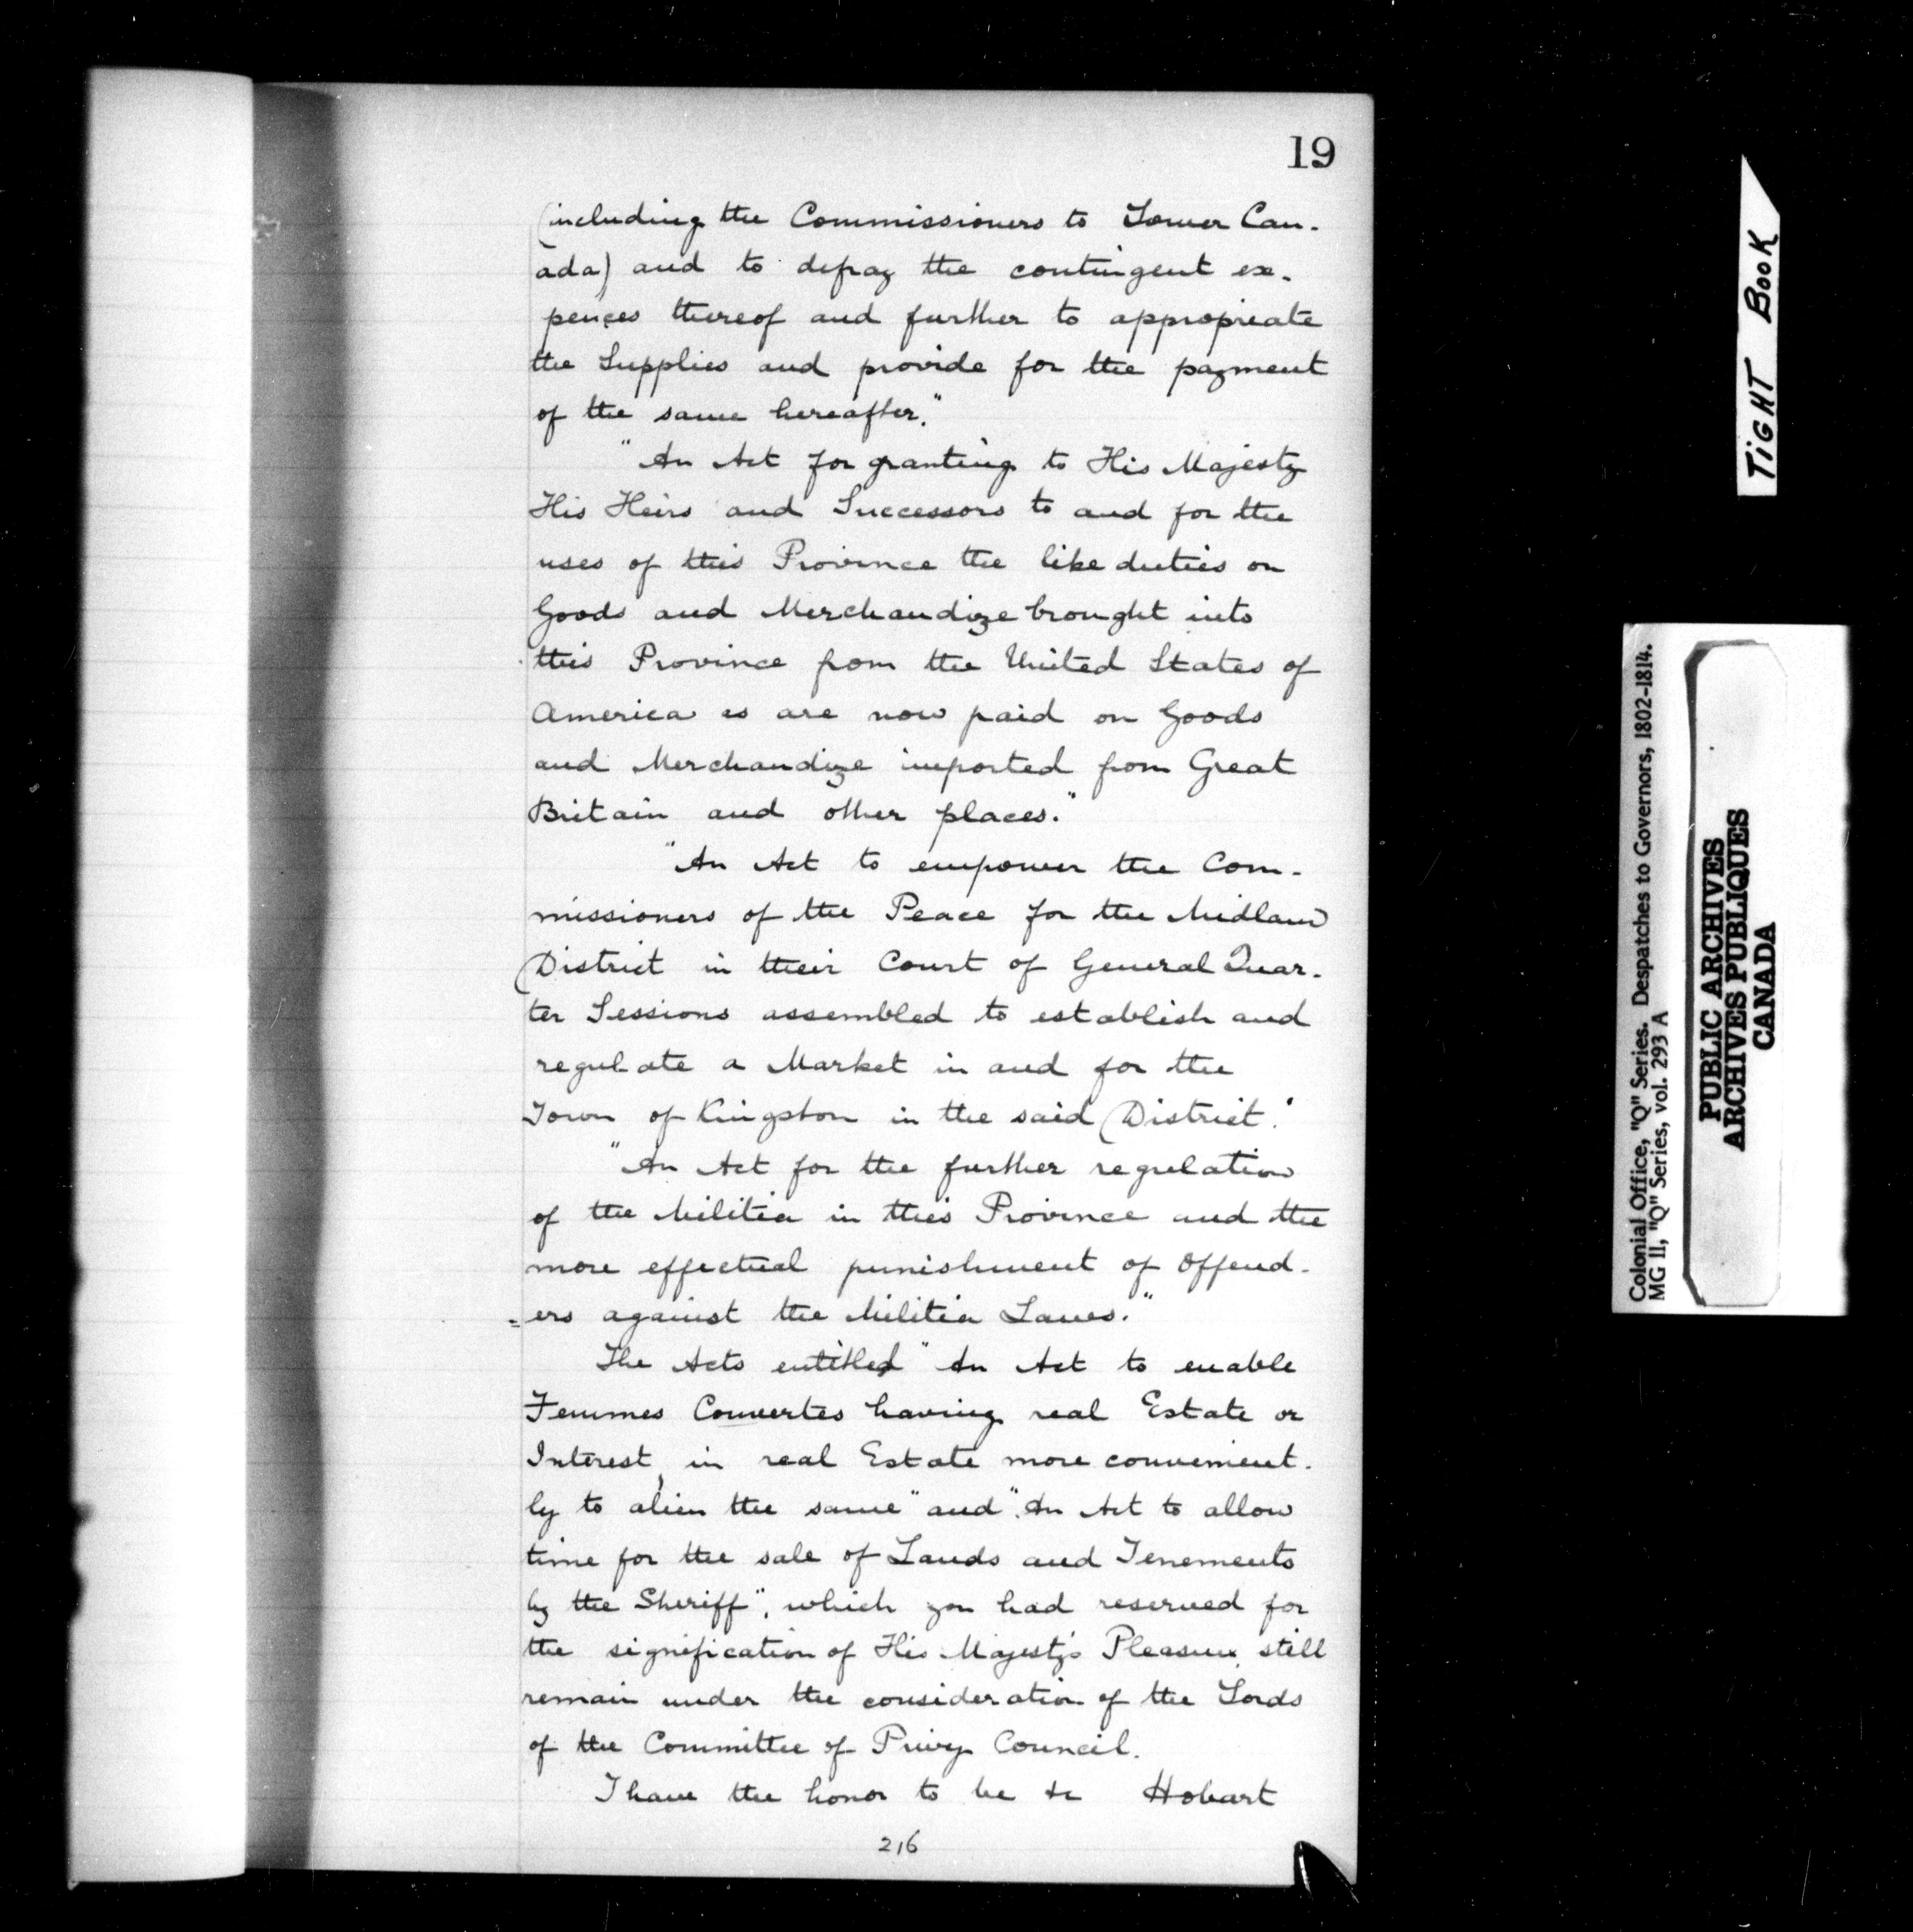 19
(including the Commissioners to Lower Can-
ada) and to defray the contingent ex-
pences thereof and further to appropreate
the Supplies and provide for the payment
of the same hereafter."
"An Act for granting to His Majesty
His Heirs and Successors to and for the
uses of this Province the like duties on
Goods and Merchandize brought into
this Province from the United States of
America as are now paid on Goods
and Merchandize imported from Great
Britain and other places."
"An Act to empower the Com-
missioners of the Peace for the Midland
District in their Court of General Quar-
ter Sessions assembled to establish and
regulate a Market in and for the
Town of Kingston in the said District."
"An Act for the further regulation
of the Militia in this Province and the
more effectual punishment of Offend-
=ers against the Militia Laws."
The Acts entitled "An Act to enable
Femmes Convertes having real Estate or
Interest, in real Estate more convenient-
ly to alien the same" and "An Act to allow
time for the sale of Lands and Tenements
by the Sheriff", which you had reserved for
the signification of His Majesty's Pleasure, still
remain under the consideration of the Lords
of the Committee of Privy Council.
I have the honor to be &c Hobart
216
TIGHT BOOK
Colonial Office, "Q" Series. Despatches to Governors, 1802-1814.
MG 11, "Q" Series, vol. 293 A
PUBLIC ARCHIVES
ARCHIVES PUBLIQUES
CANADA